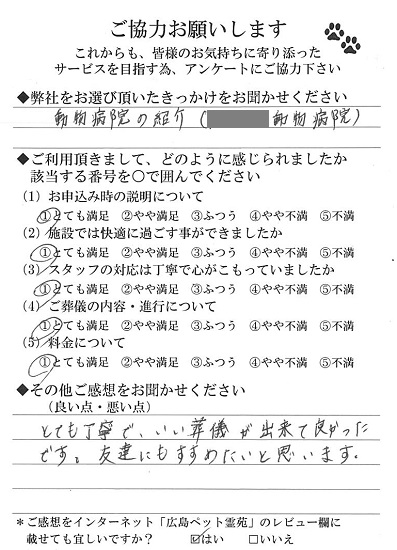 ご協力お願いします
これからも、皆様のお気持ちに寄り添った
サービスを目指す為、アンケートにご協力下さい
◆弊社をお選び頂いたきっかけをお聞かせください
動物病院の紹介(動物病院)
◆ご利用頂きまして、どのように感じられましたか
該当する番号を〇で囲んでください
(1) お申込み時の説明について
①とても満足 ②やや満足 ③ふつう ④やや不満 ⑤不満
(2) 施設では快適に過ごす事ができましたか
①とても満足 ②やや満足 ③ふつう ④やや不満 ⑤不満
(3) スタッフの対応は丁寧で心がこもっていましたか
①とても満足 ②やや満足 ③ふつう ④やや不満 ⑤不満
(4) ご葬儀の内容・進行について
①とても満足 ②やや満足 ③ふつう ④やや不満 ⑤不満
(5) 料金について
①とても満足 ②やや満足 ③ふつう ④やや不満 ⑤不満
◆その他ご感想をお聞かせください
(良い点・悪い点)
とても丁寧で、いい葬儀が出来て良かった
です。友達にもすすめたいと思います。
*ご感想をインターネット「広島ペット霊苑」のレビュー欄に
載せても宜しいですか? ☑はい □いいえ